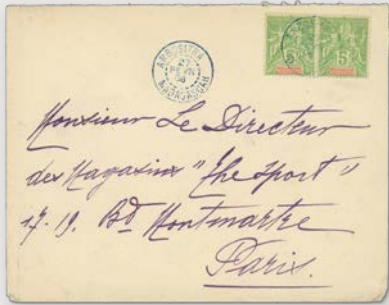 AMBOSITRA
MADAGASCAR
5
Monsieur Le Directeur
des Magasins "The Sport"
17-19. Bd Montmartre
Paris.